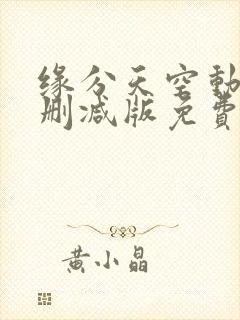 缘分天空動
删减版免費
黄小晶